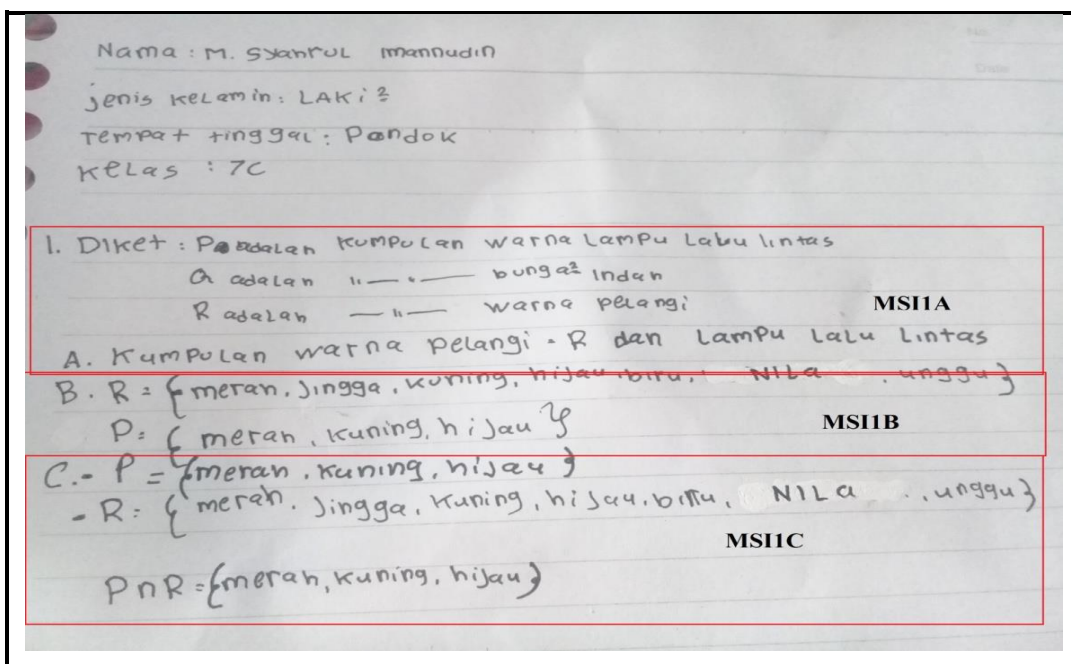 Nama : M. Syahrul mannudin
jenis kelamin : LAKi²
Tempat tinggal : Pondok
Kelas : 7C
1. Diket : P adalah kumpulan warna Lampu Lalu lintas
Q adalah 〃—〃— bunga² Indah
R adalah —〃— warna pelangi
MSI1A
A. Kumpulan warna pelangi = R dan Lampu Lalu Lintas
B. R = {merah, Jingga, kuning, hijau, biru, NILa, unggu}
P = {merah, kuning, hijau}
MSI1B
C. - P = {merah, kuning, hijau}
- R = {merah, Jingga, kuning, hijau, biru, NILa, unggu}
MSI1C
P∩R = {merah, kuning, hijau}